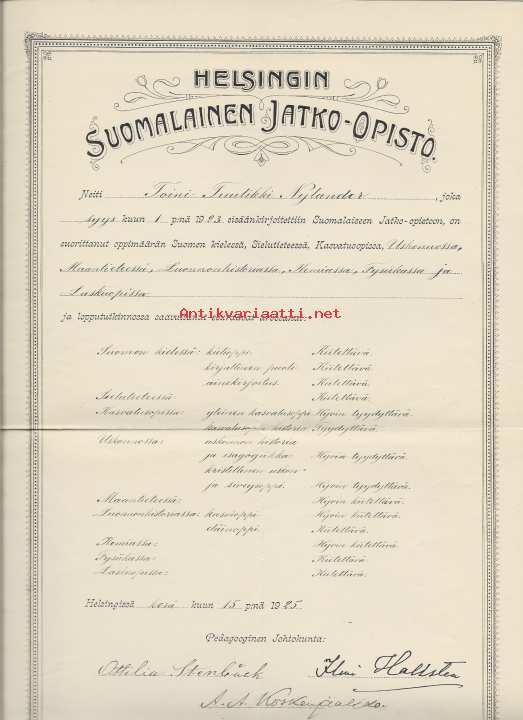 HELSINGIN
SUOMALAINEN JATKO-OPISTO.
Neiti Toini Tuulikki Nylander, joka
syys kuun 1 p:nä 1923 sisäänkirjoitettiin Suomalaiseen Jatko-opistoon, on
suorittanut oppimäärän Suomen kielessä, Sielutieteessä, Kasvatusopissa, Uskonnossa,
Maantieteessä, Luonnonhistoriassa, Kemiassa, Fysiikassa ja
Laskuopissa
Antikvariaatti.net
ja loppututkinnossa saavuttanut seuraavat arvosanat:
Suomen kielessä: kielioppi Kiitettävä
kirjallinen puoli Kiitettävä.
ainekirjoitus Kiitettävä.
Sielutieteessä Kiitettävä.
Kasvatusopissa: yleinen kasvatusoppi Hyvin tyydyttävä.
kasvatusopin historia Tyydyttävä.
Uskonnossa: uskonnon historia
ja isagogiikka Hyvin tyydyttävä.
kristillinen uskon-
ja siveysoppi. Hyvin tyydyttävä.
Maantieteessä: Hyvin kiitettävä.
Luonnonhistoriassa: kasvioppi Hyvin kiitettävä.
eläinoppi. Kiitettävä.
Kemiassa: Hyvin kiitettävä.
Fysiikassa: Kiitettävä.
Laskuopissa: Kiitettävä.
Helsingissä kesä kuun 15 p:nä 1925.
Pedagooginen Johtokunta:
Ottilia Stenbäck Ilmi Hallsten
A. A. Koskenjaakko.